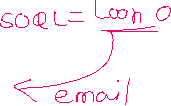 SOQL = Loon 0
email